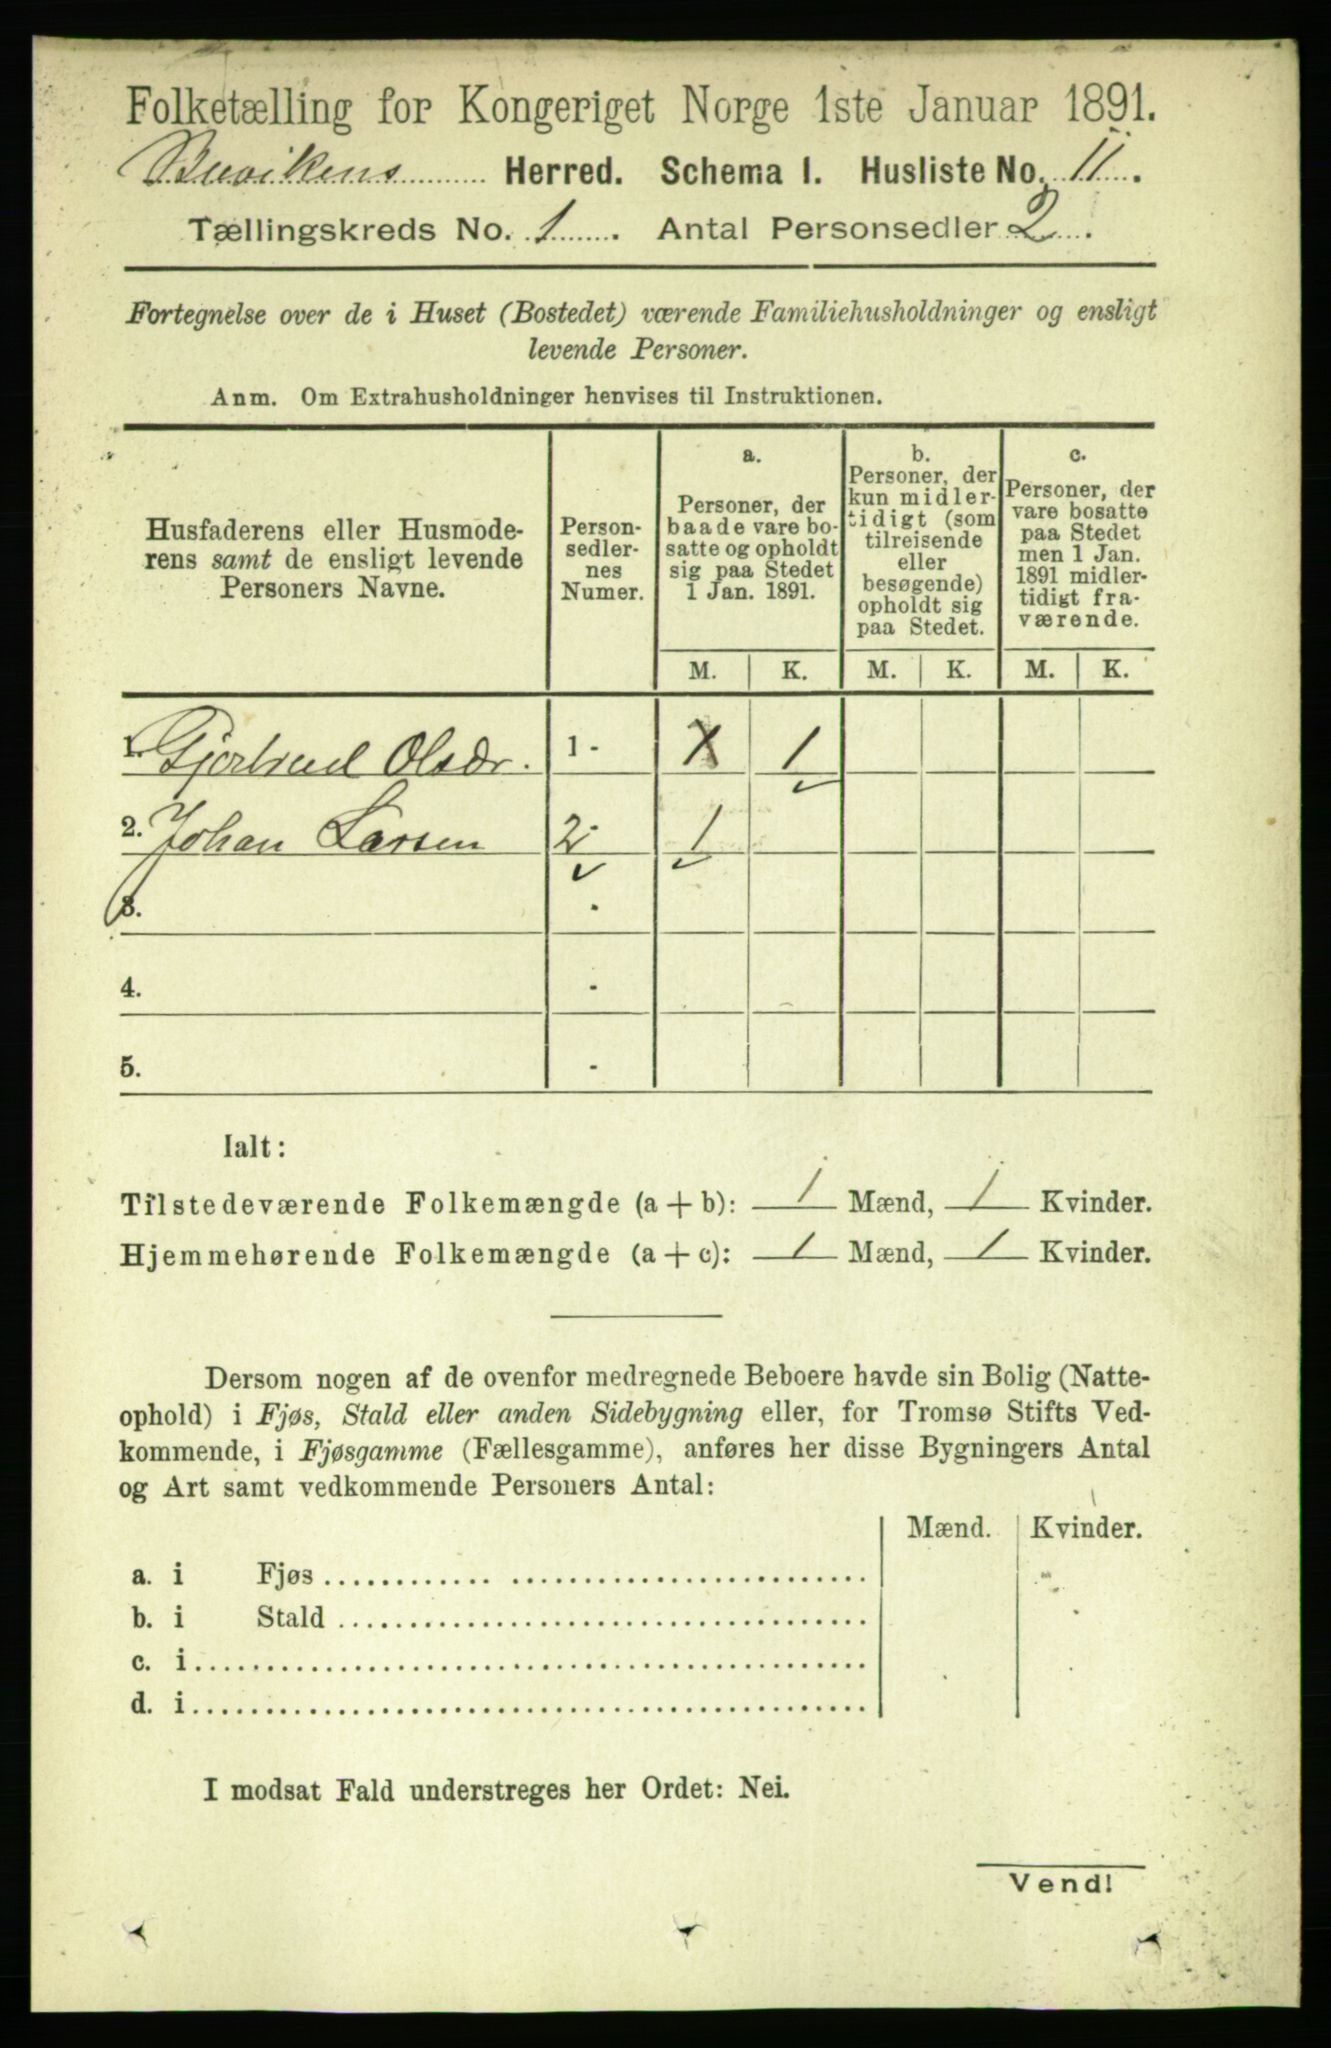 Folketælling for Kongeriget Norge 1ste Januar 1891.
Buvikens Herred. Schema I. Husliste No. 11.
Tællingskreds No. 1. Antal Personsedler 2.
Fortegnelse over de i Huset (Bostedet) værende Familiehusholdninger og ensligt
levende Personer.
Anm. Om Extrahusholdninger henvises til Instruktionen.
Husfaderens eller Husmode-
rens samt de ensligt levende
Personers Navne.
Person-
sedler-
nes
Numer.
a.
Personer, der
baade vare bo-
satte og opholdt
sig paa Stedet
1 Jan. 1891.
b.
Personer, der
kun midler-
tidigt (som
tilreisende
eller
besøgende)
opholdt sig
paa Stedet.
c.
Personer, der
vare bosatte
paa Stedet
men 1 Jan.
1891 midler-
tidigt fra-
værende.
M. K. M. K. M. K.
1. Gjertrud Olsdr. 1 - X 1
2. Johan Larsen 2 - 1
3. -
4. -
5. -
Ialt:
Tilstedeværende Folkemængde (a + b): 1 Mænd, 1 Kvinder.
Hjemmehørende Folkemængde (a + c): 1 Mænd, 1 Kvinder.
Dersom nogen af de ovenfor medregnede Beboere havde sin Bolig (Natte-
ophold) i Fjøs, Stald eller anden Sidebygning eller, for Tromsø Stifts Ved-
kommende, i Fjøsgamme (Fællesgamme), anføres her disse Bygningers Antal
og Art samt vedkommende Personers Antal:
Mænd. Kvinder.
a. i Fjøs
b. i Stald
c. i
d. i
I modsat Fald understreges her Ordet: Nei.
Vend!